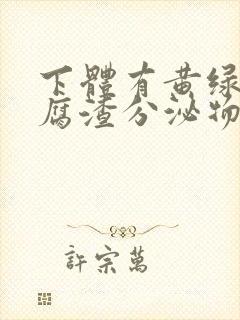 下體有黄绿
腐渣分泌物
許宗萬